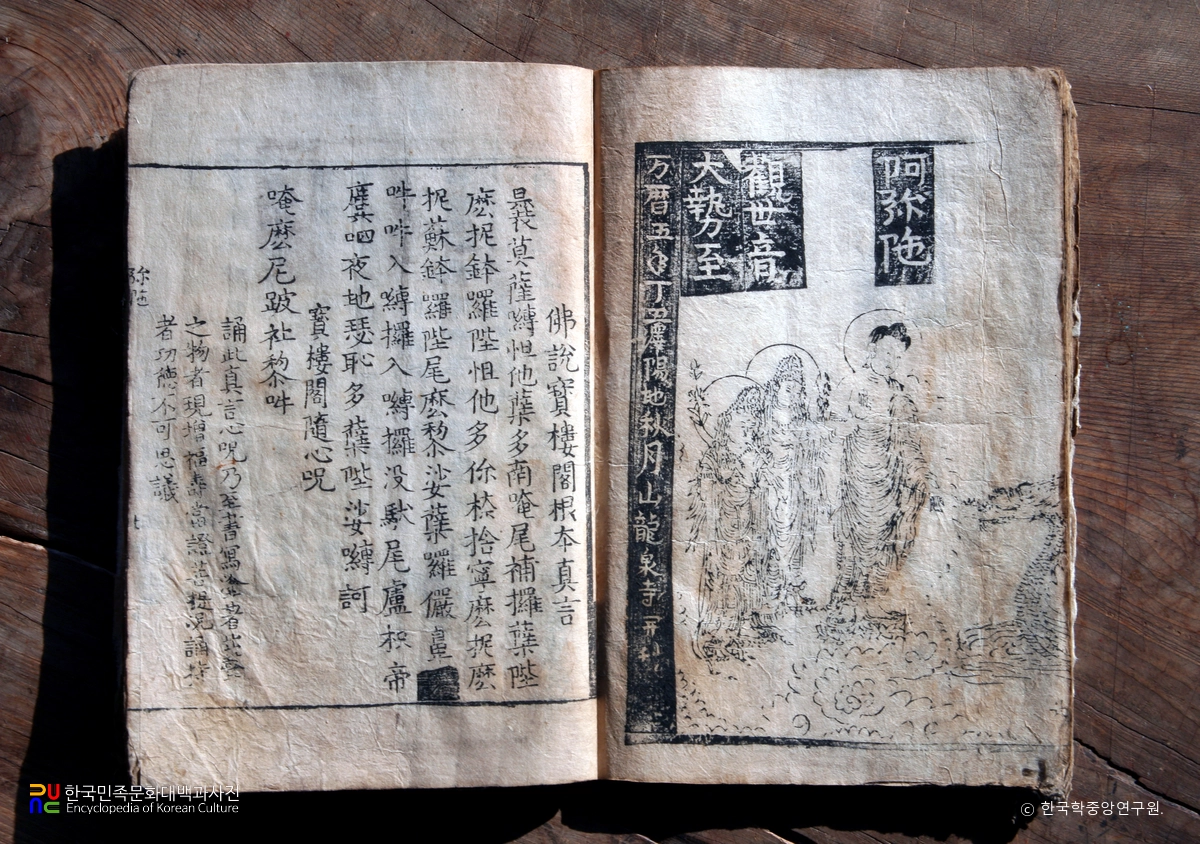 阿弥陁
觀世音
大勢至
万曆五年丁丑潭陽地秋月山龍泉寺開板
佛說寶樓閣根本真言
曩莫薩嚩怛他蘖多南唵尾補攞蘖陛
麽抳鉢羅陛怛他多你捺捨寧麽抳麽
抳蘇鉢羅陛尾麽黎娑蘖羅儼
吽吽入嚩攞入嚩攞没馱尾盧枳帝
麌呬夜地瑟耻多蘖陛娑嚩訶
寶樓閣隨心呪
唵麽尼跋祉黎吽
誦此真言心呪乃至書寫
之物者現增福壽當證菩提况誦持
者功德不可思議
弥陁
七
한국민족문화대백과사전
Encyclopedia of Korean Culture
© 한국학중앙연구원.